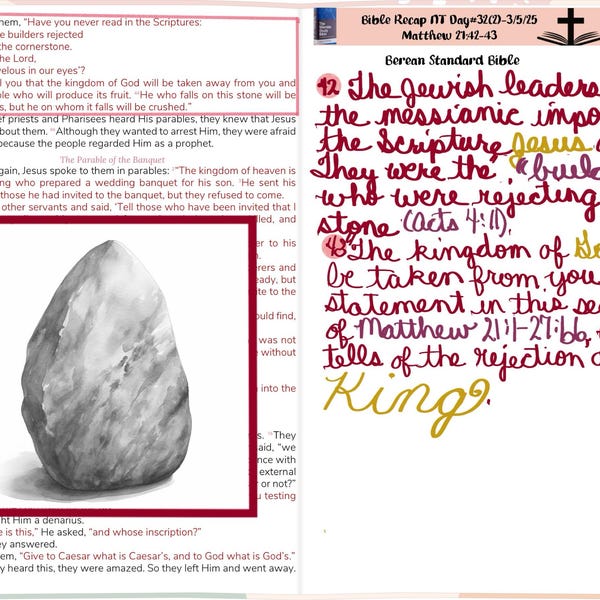 hem, “Have you never read in the Scriptures:
e builders rejected
the cornerstone.
he Lord,
velous in our eyes’?
l you that the kingdom of God will be taken away from you and
ple who will produce its fruit. ⁴⁴He who falls on this stone will be
s, but he on whom it falls will be crushed.”
ef priests and Pharisees heard His parables, they knew that Jesus
about them. ⁴⁶Although they wanted to arrest Him, they were afraid
because the people regarded Him as a prophet.
The Parable of the Banquet
gain, Jesus spoke to them in parables: ²“The kingdom of heaven is
ing who prepared a wedding banquet for his son. ³He sent his
those he had invited to the banquet, but they refused to come.
other servants and said, ‘Tell those who have been invited that I
lled, and
er to his
n.
erers and
eady, but
ite to the
ould find,
was not
e without
n into the
s. ¹⁶They
said, “we
nce with
external
y or not?”
u testing
ght Him a denarius.
e is this,” He asked, “and whose inscription?”
ey answered.
em, “Give to Caesar what is Caesar’s, and to God what is God’s.”
y heard this, they were amazed. So they left Him and went away.
Bible Recap NT Day#32(2)-3/5/25
Matthew 21:42-43
Berean Standard Bible
42 The Jewish leaders
the messianic impo
the Scripture Jesus
They were the "buil
who were rejecting
stone (Acts 4:11).
43 The kingdom of Go
be taken from you
statement in this se
of Matthew 21:1-27:66,
tells of the rejection o
King.